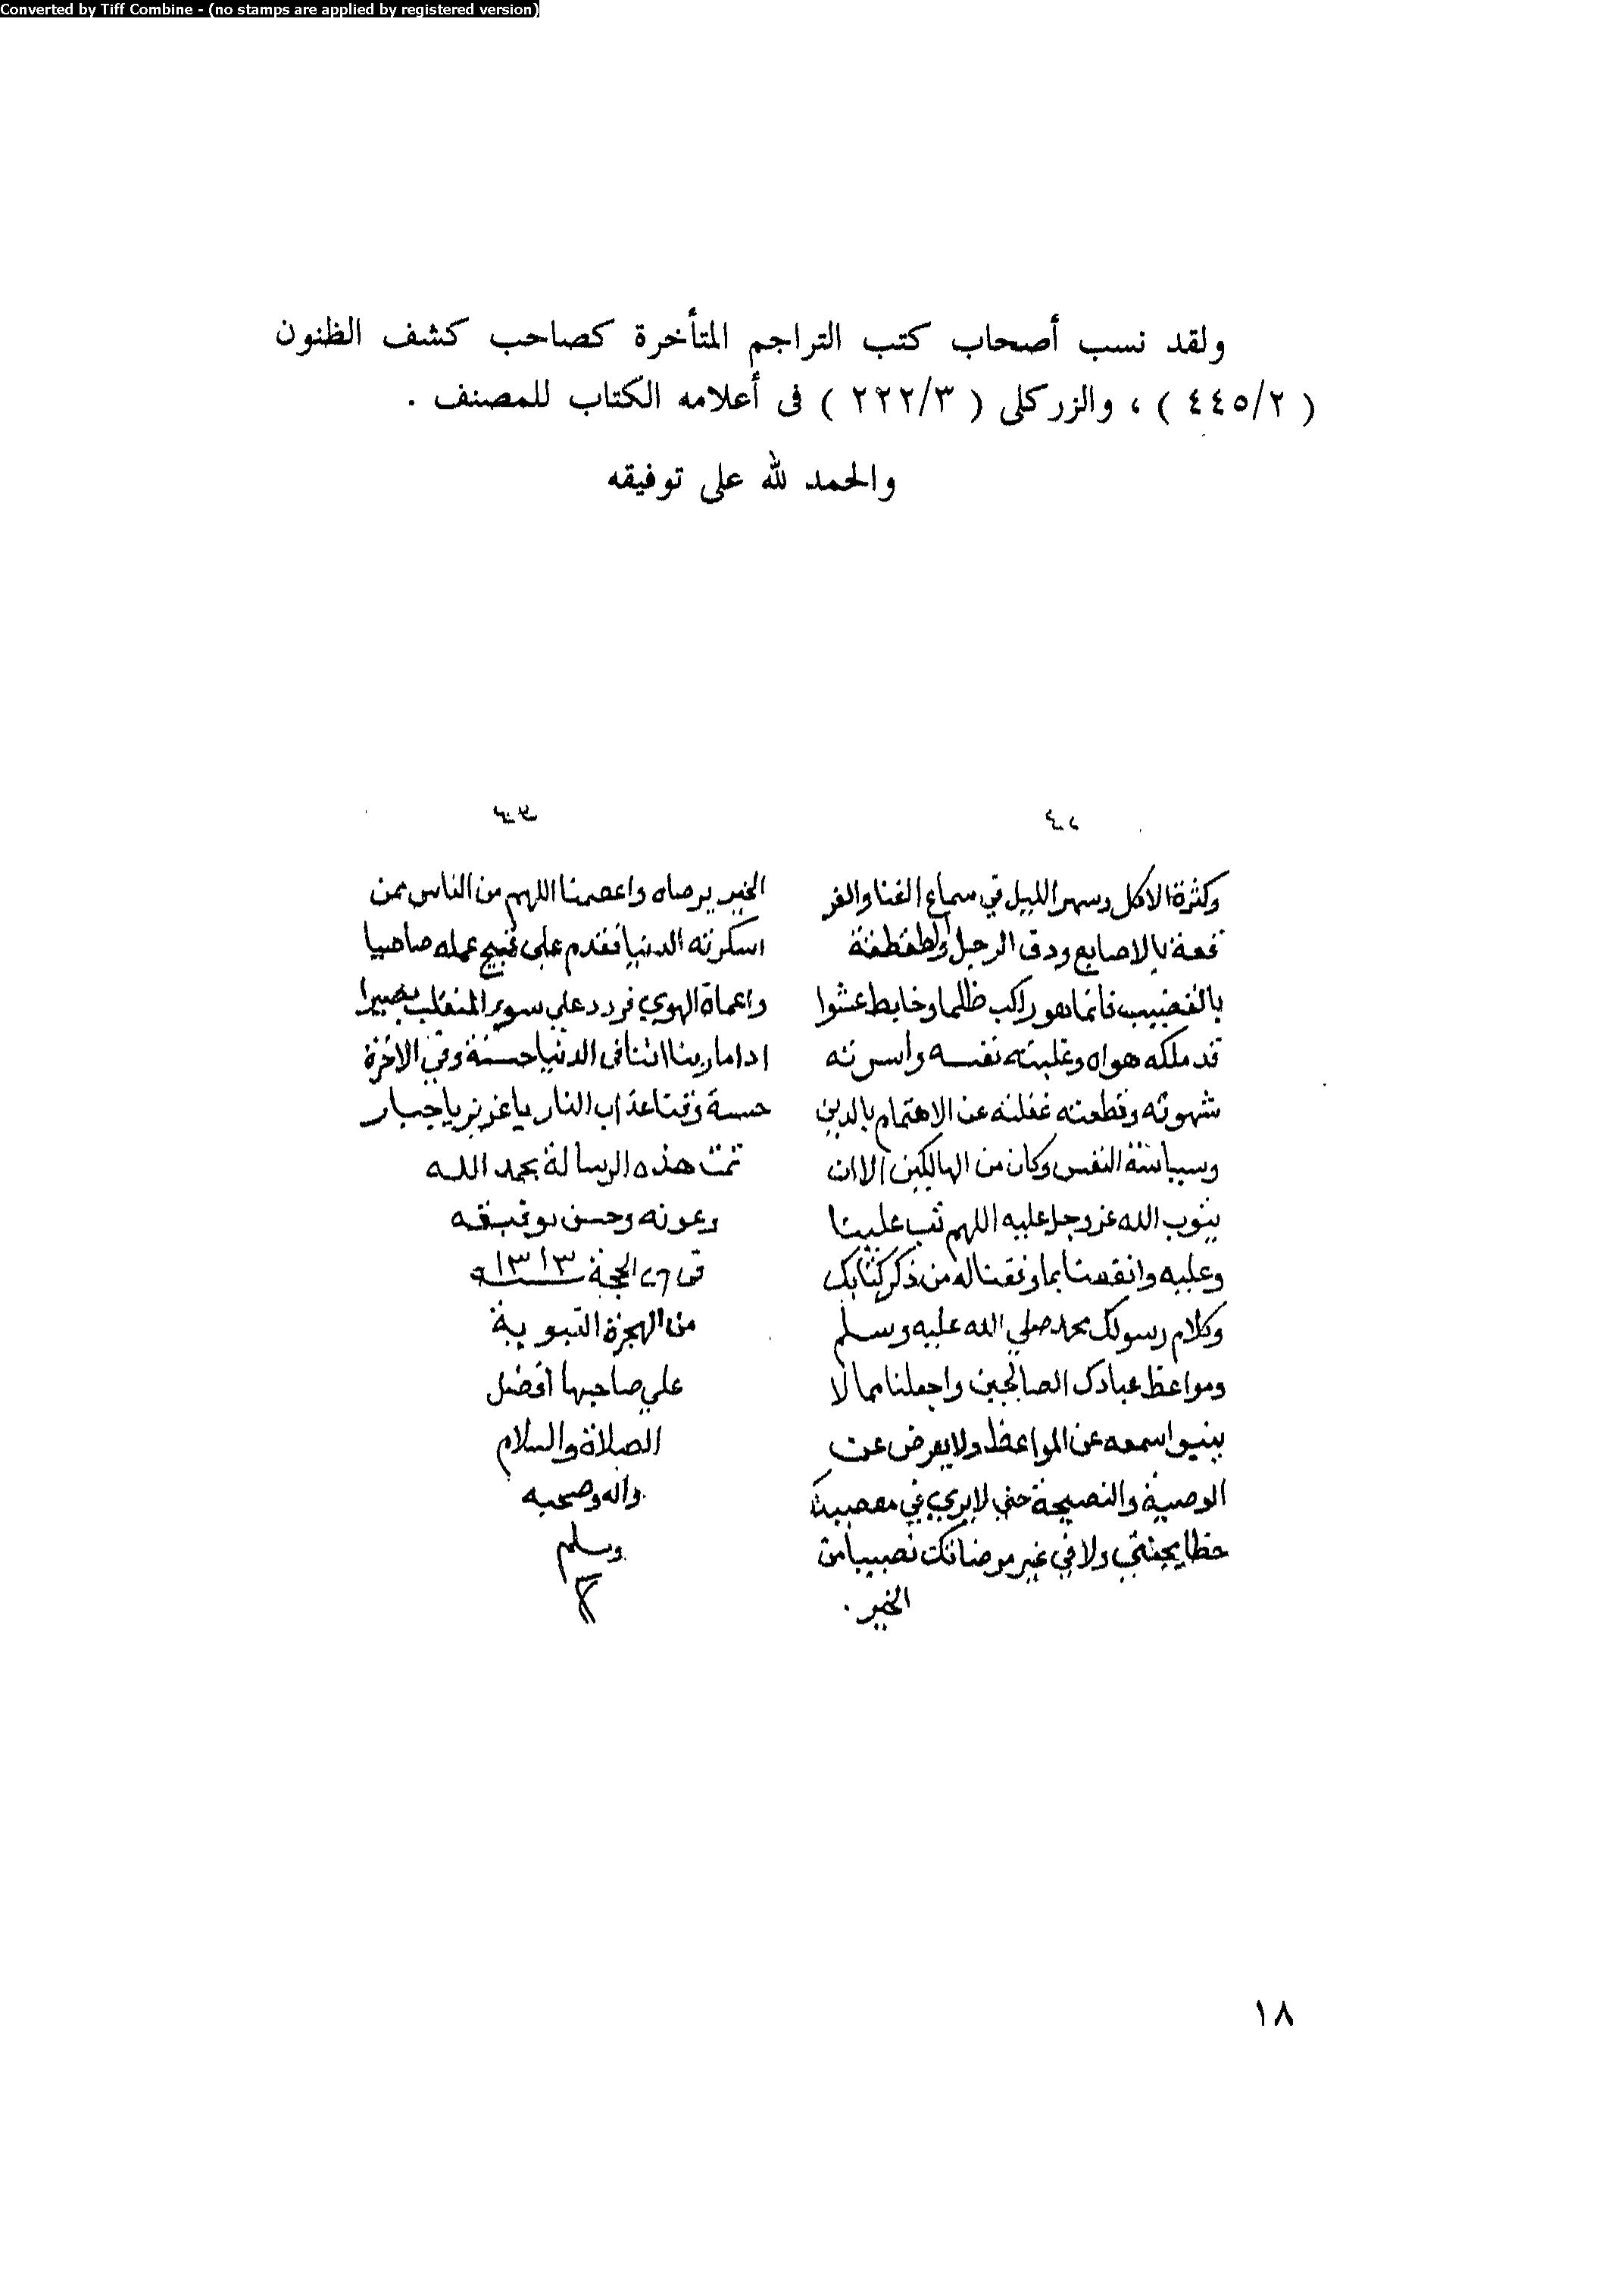 Converted by Tiff Combine - (no stamps are applied by registered version)
ولقد نسب أصحاب كتب التراجم المتأخرة كصاحب كشف الظنون
( ٤٤٥/٢ ) ، والزركلى ( ٢٢٢/٣ ) فى أعلامه الكتاب للمصنف .
والحمد لله على توفيقه
وكثرة الاكل وسهر الليل في سماع الغنا والفر
قعة بالاصابع ودق الرجل والطقطقة
بالقضيب فانما هو راكب ظلما وخابط عشوا
قد ملكه هواه وغلبته نفسه وأسرته
شهوته وقطعته غفلته عن الاهتمام بالدين
وسياسة النفس وكان من الهالكين الا ان
يتوب الله عز وجل عليه اللهم تب علينا
وعليه وانفعنا بما وفقتنا له من ذكر كتابك
وكلام رسولك محمد صلي الله عليه وسلم
ومواعظ عبادك الصالحين واجعلنا مما لا
ينبوا سمعه عن المواعظ ولا يعرض عن
الوصية والنصيحة حتي لا يري في معصيتك
حظا يجتني ولا في غير مرضاتك نصيبا من
الخير .
٤٣
الخير يرضاه واعصمنا اللهم من الناس ممن
اسكرته الدنيا فقدم على قبيح عمله صاحيا
واعماه الهوي فردد علي سوير المنقلب بصيرا
اداما ربنا اتنا فى الدنيا حسنة وفي الاخرة
حسنة وقنا عذاب النار يا عزيز يا جبار
تمت هذه الرسالة بحمد الله
وعونه وحسن توفيقه
الحجة سنة ١٣١٣
من الهجرة النبوية
علي صاحبها افضل
الصلاة والسلام
واله وصحبه
وسلم
١٨